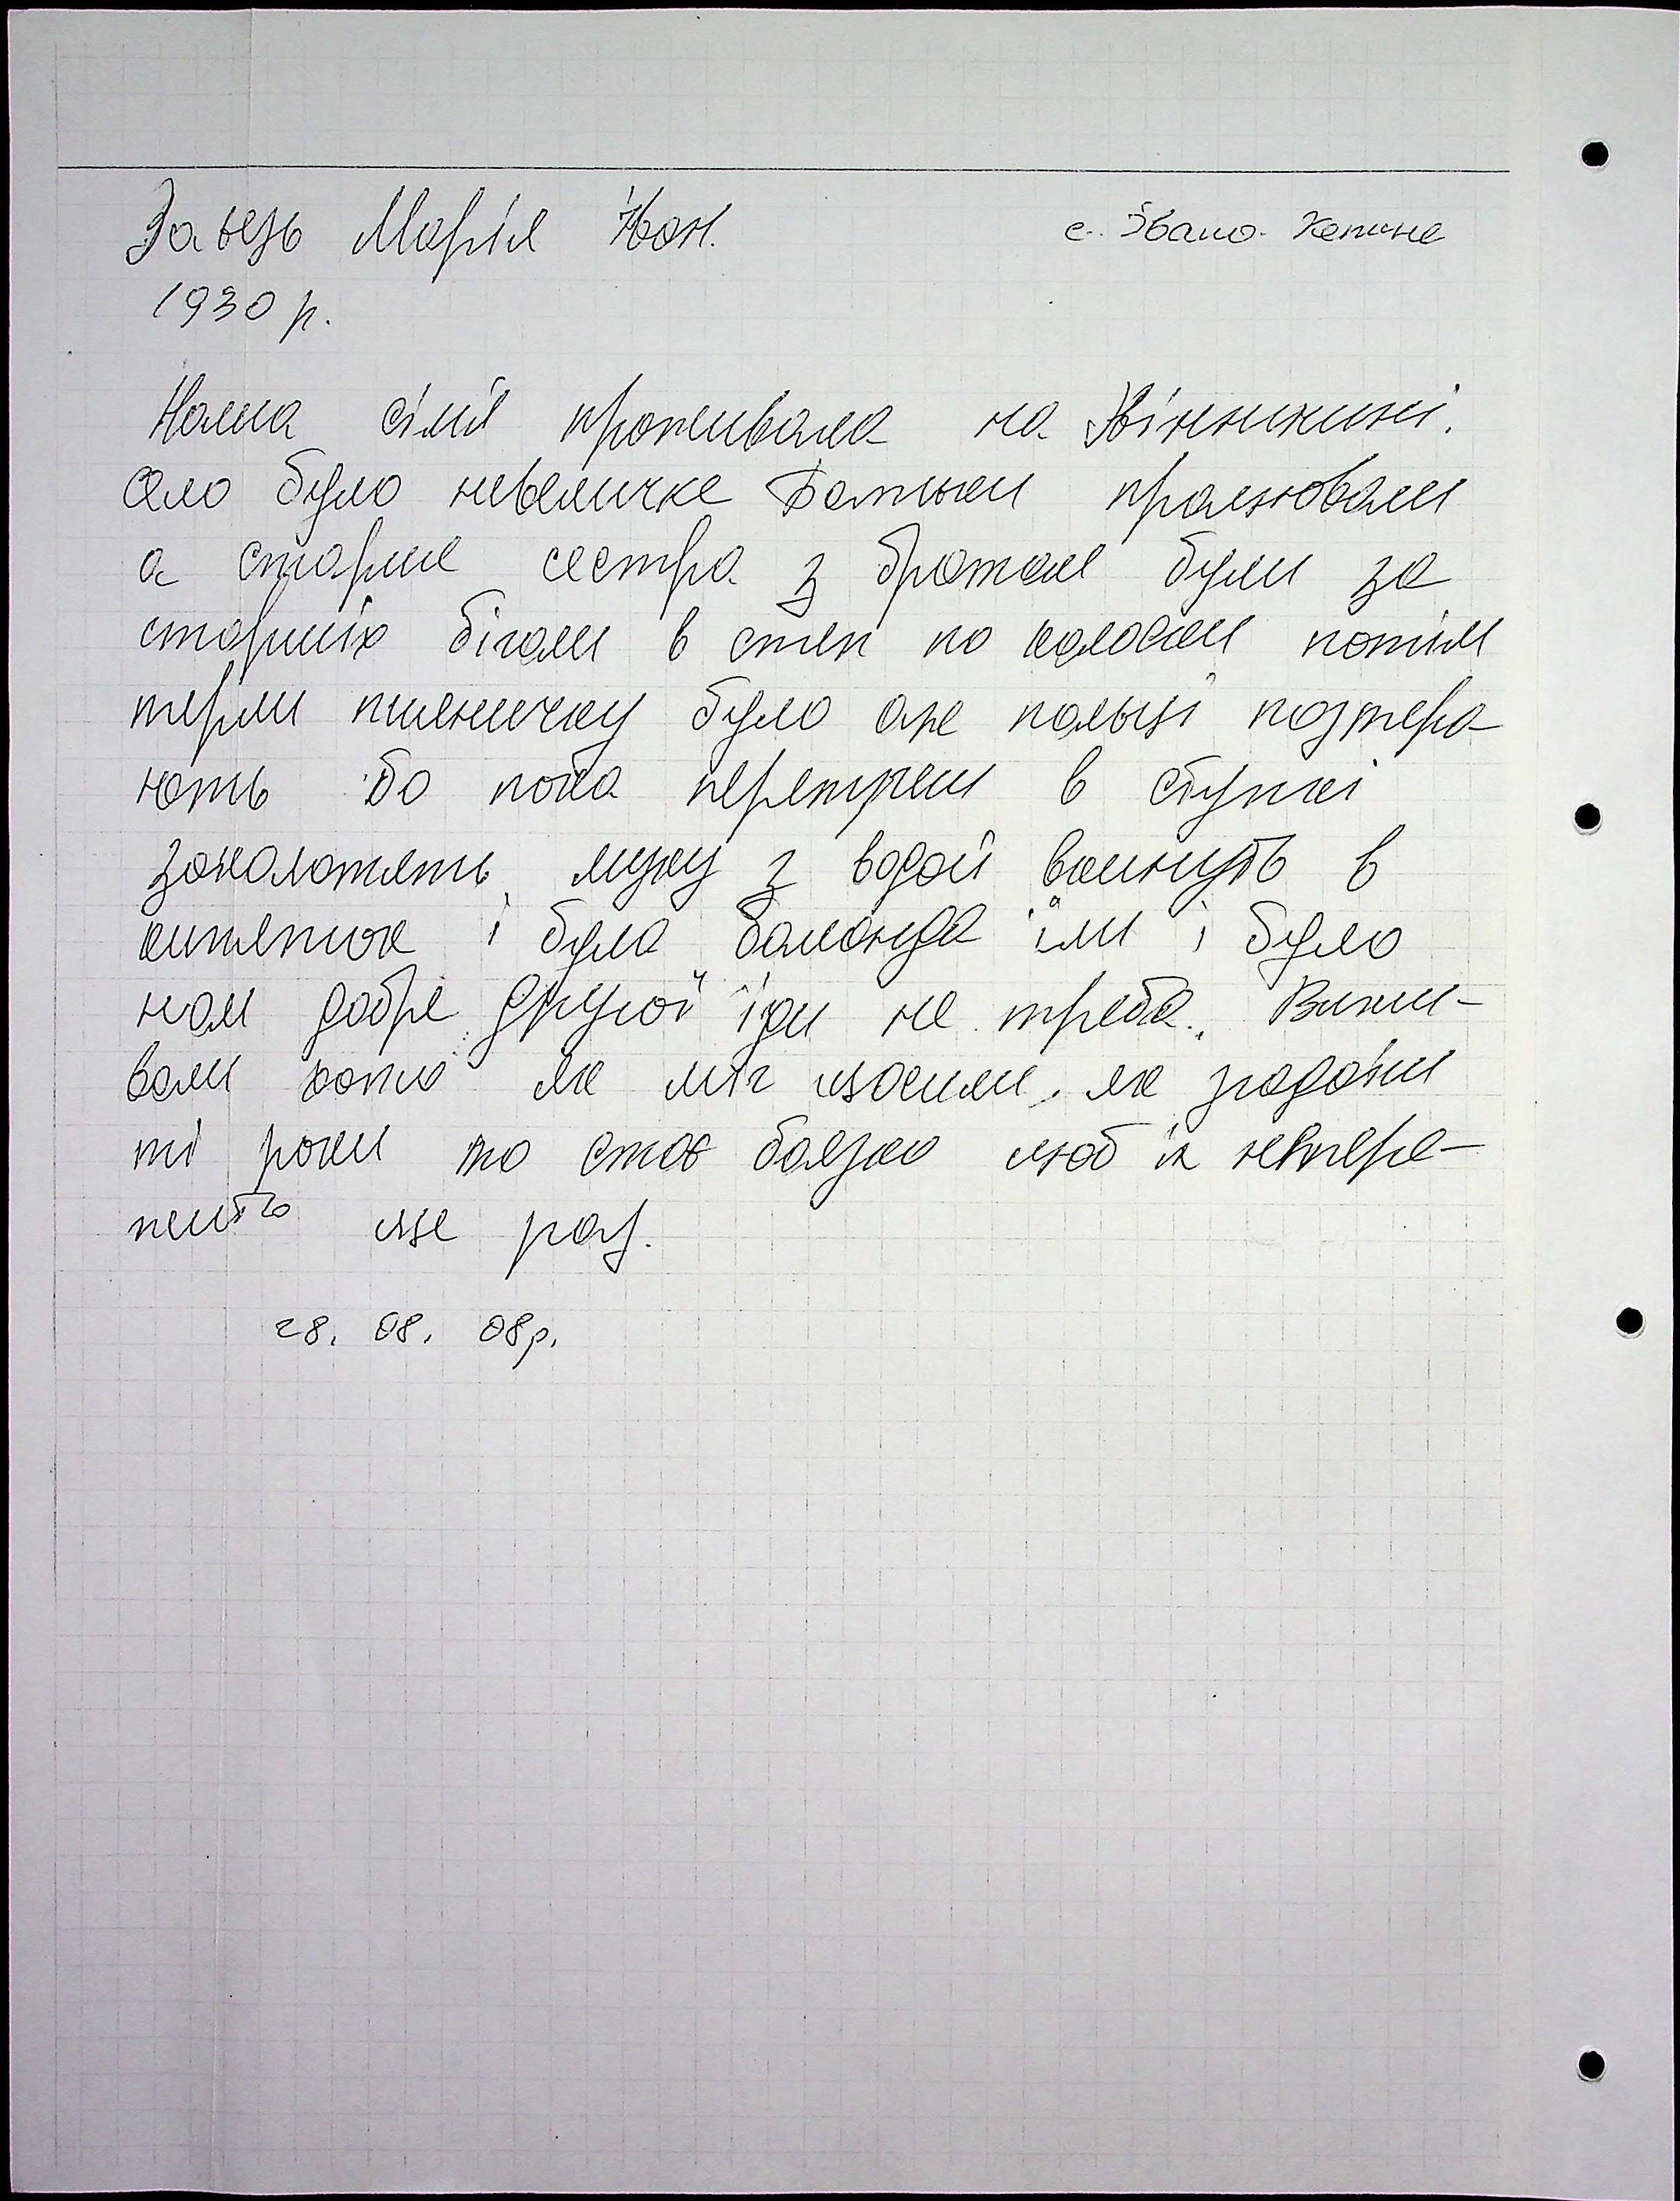 Заєць Марія Іван. с. Івано-Кепине
1930 р.
Наша сімя проживала на Вінничині.
Село було невеличке Батьки працювали
а старше сестра з братом були за
старших бігали в степ по колоски потім
терли пшеничку було аж пальці позтера-
ють бо поka перетруть в ступкі
заколотять муку з водой вкинуть в
кипяток і була баланда їли і було
нам добре другої їди не треба. Вижи-
вали хото як міг изоили, як згадаєш
ті роки то стає боязко щоб їх непере-
жить ще раз.
28. 08. 08р.